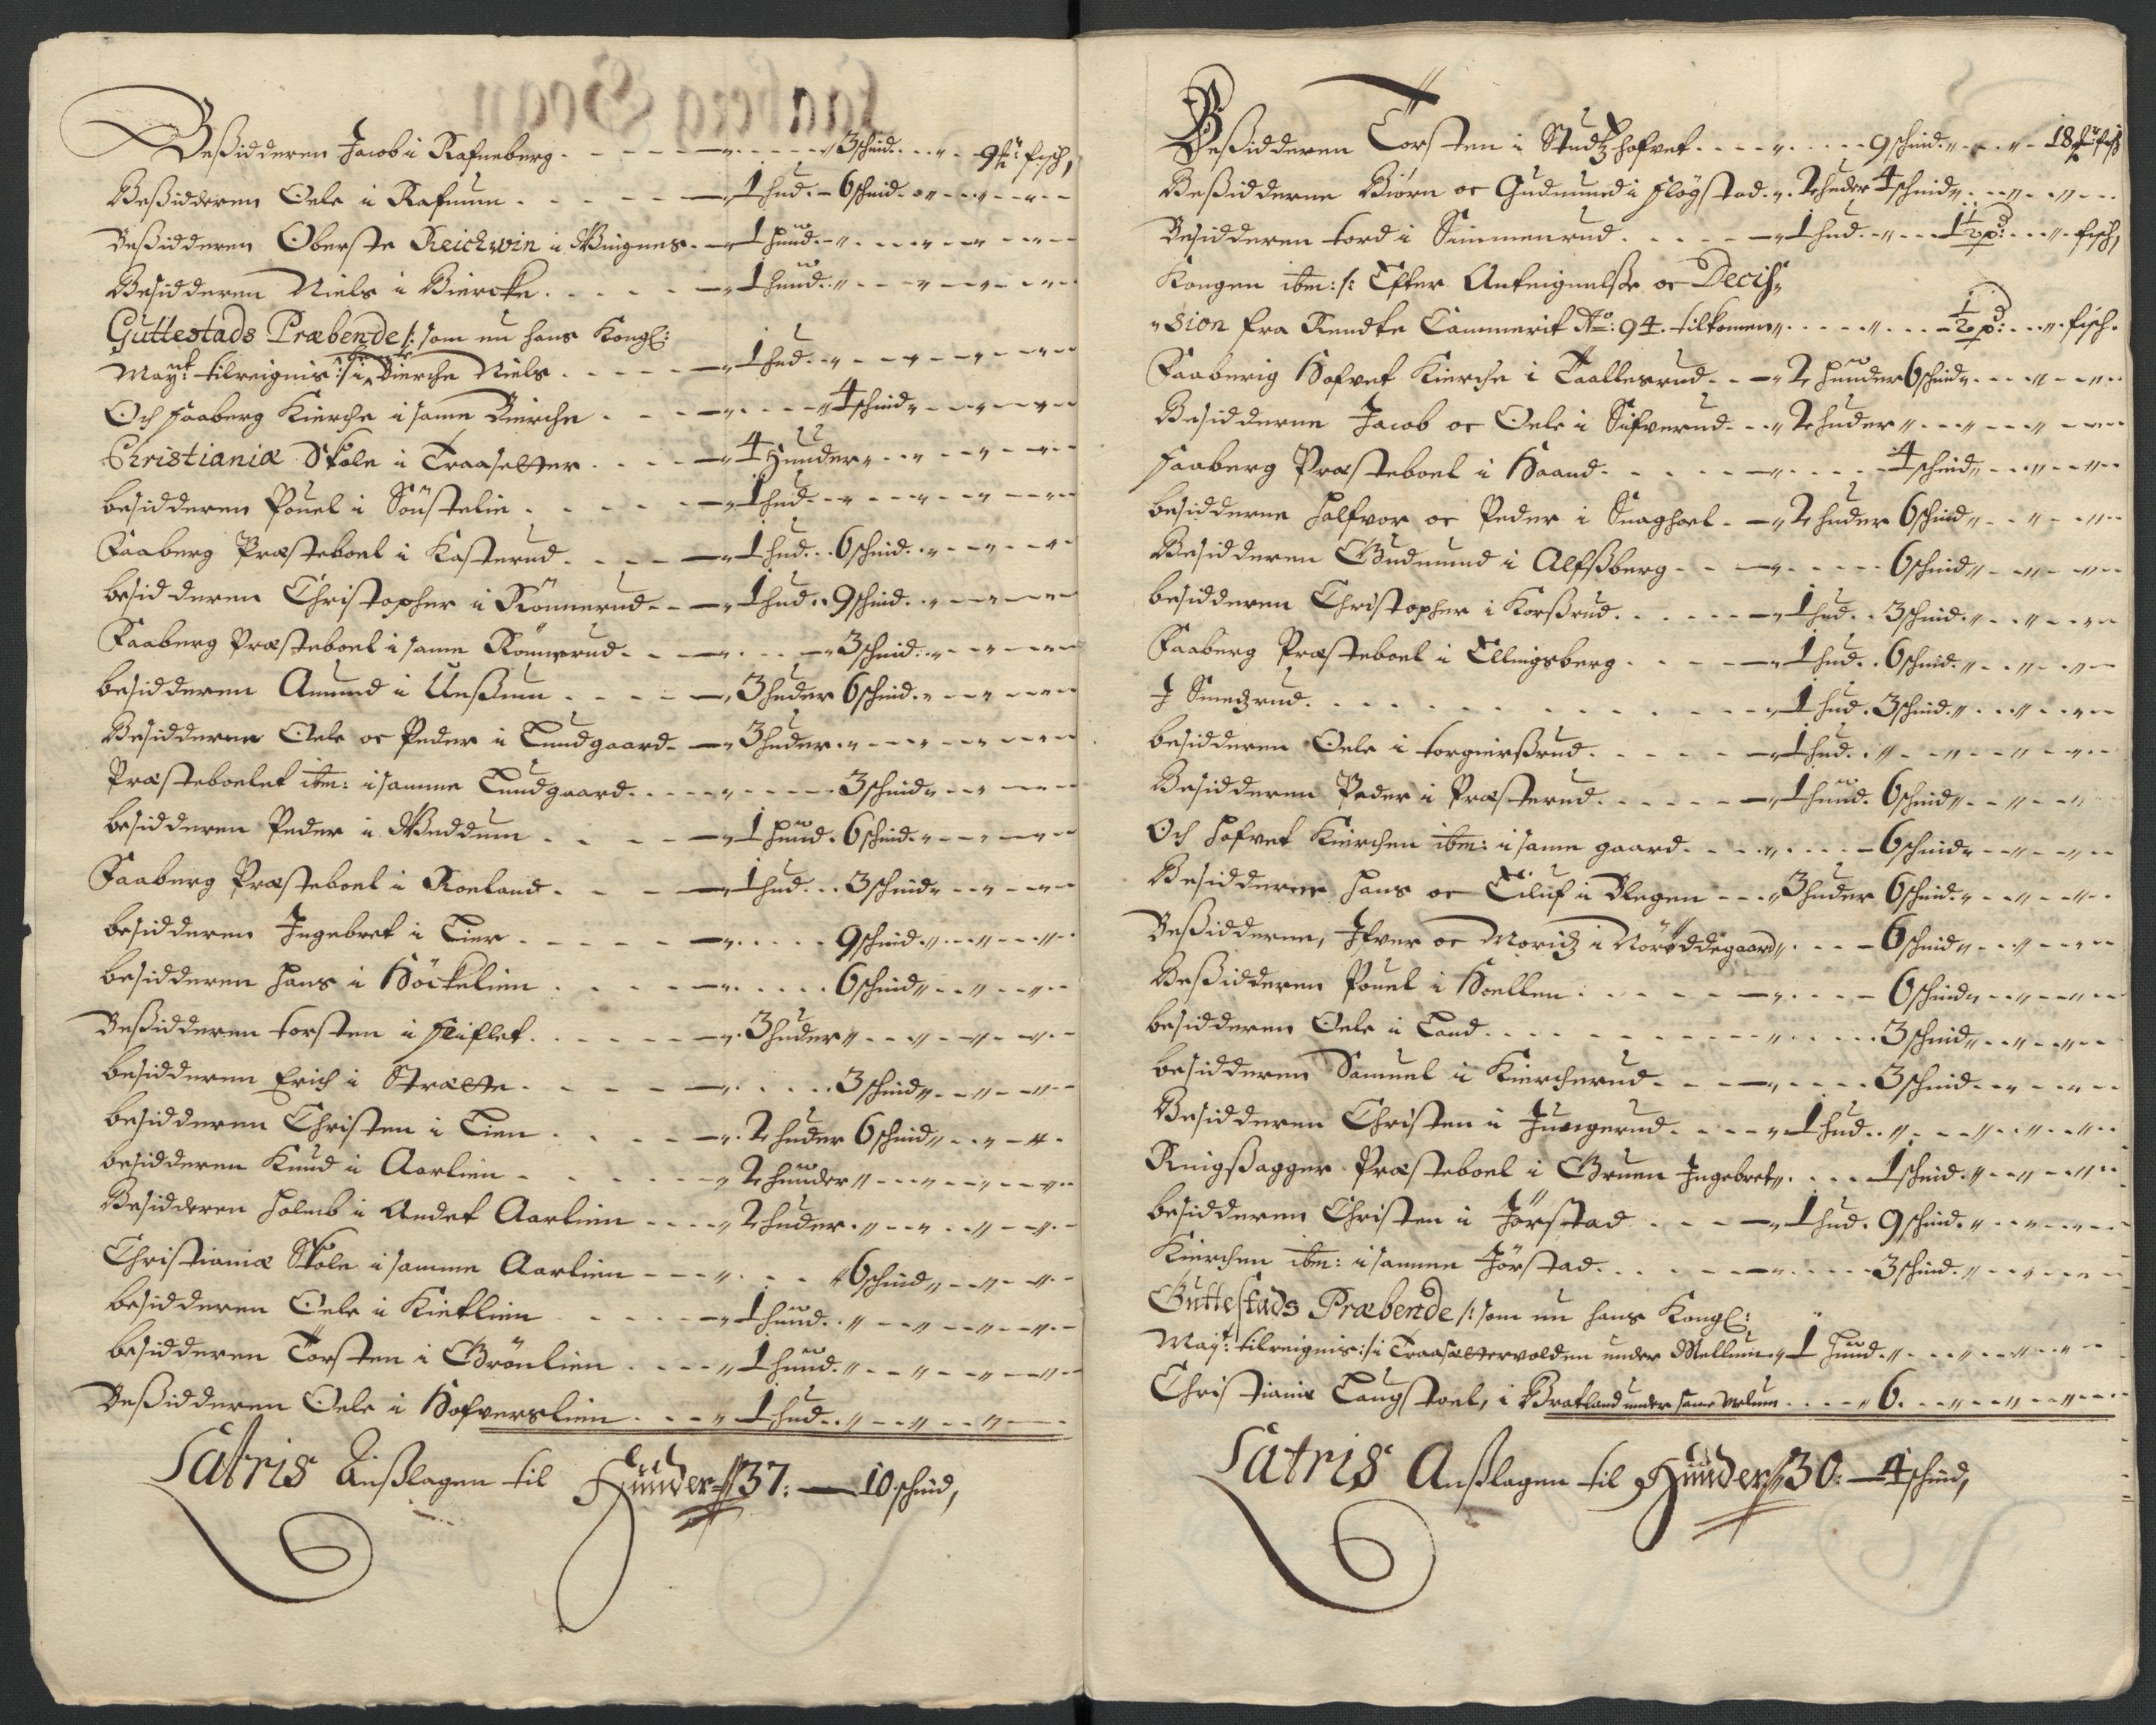 Beßidderen Jacob i Rafneberg . . . . . 3 schind . . . 9 ℔r fisch,
Beßidderen Oele i Rafnum . . . . 1 hud - 6 schind
Beßidderen Oberste Reichwin i Wingnes . 1 hund
Besidderen Niels i Biercke . . . . 1 hund
Guttestads Præbende /: som nu hans Kongl:
Mayt: tilreignis :/ i Bierche Niels . . . 1 hud
Och Faaberg Kierche i same Bierche . . . 4 schind
Christianiæ Skole i Traasetter . . . 4 Hunder
besidderen Pouel i Sönstelie . . . . 1 hud
Faaberg Præsteboel i Kasterud . . . 1 hud . . 6 schind
besidderen Christopher i Rönnerud . . 1 hud . 9 schind
Faaberg Præsteboel i same Rönnerud . . . 3 schind
besidderen Amund i Unßum . . . . 3 huder 6 schind
Besidderne Oele oc Peder i Lundgaard . 3 huder
Præsteboelet ibm: i samme Lundgaard . . . 3 schind
besidderen Peder i Weddum . . . . 1 hund . 6 schind
Faaberg Præsteboel i Roeland . . . 1 hud . . 3 schind
besidderen Ingebret i Lier . . . . . 9 schind
besidderen Hans i Böckelien . . . . 6 schind
Beßidderen Torsten i Fliflet . . . . 3 huder
besidderen Erich i Strætte . . . . 3 schind
besidderen Christen i Lien . . . . 2 huder 6 schind
besidderen Knud i Aarlien . . . . 2 hunder
Besidderen Holmb i Andet Aarlien . . . 2 huder
Christianiæ Skole i samme Aarlien . . . 6 schind
besidderen Oele i Kieklien . . . . 1 hund
besidderen Torsten i Grönlien . . . 1 hund
Beßidderen Oele i Hofverslien . . . 1 hud
Latris Anßlagen til Hunder 37: — 10 schind,
Beßidderen Torsten i Studtzhofvet . . . . 9 schind . . . 18 ℔r fisch
Beßidderne Biørn oc Gudmund i Fløgstad . 2 huder 4 schind
Besidderen Tord i Simmenrud . . . . 1 hud . . . 1½ pd: . . . fisch,
Kongen ibm: /: Efter Anteignelße oc Decis-
sion fra Rendte Cammerit Ao: 94. tilkomen . . . . ½ pd: . . . fisch.
Faaberig Hofvet Kierche i Taallerud . . 2 hunder 6 schind
Besidderne Jacob oc Oele i Sifverud . . 2 huder
Faaberg Præsteboel i Haand . . . . 4 schind
besidderne Halfvor oc Peder i Suaghoel . 2 huder 6 schind
Besidderen Gudmund i Alfßberg . . . . 6 schind
besidderen Christopher i Korßrud . . . . 1 hud . . 3 schind
Faaberg Præsteboel i Ellingsberg . . . 1 hud . . 6 schind
I Smedzrud . . . . . . . . 1 hud . 3 schind
besidderen Oele i Torgierßrud . . . . 1 hud
Besidderen Peder i Præsterud . . . . 1 hund . 6 schind
Och Hofvet Kierchen ibm: i same gaard . . . . 6 schind
Besidderne Hans oc Eiluf i Slagen . . . 3 huder 6 schind
Beßidderne, Ifver oc Moridz i Nöreddegaard . . . 6 schind
Beßidderen Pouel i Hoellen . . . . . 6 schind
besidderen Oele i Land . . . . . . 3 schind
besidderen Samuel i Kiercherud . . . . 3 schind
Besidderen Christen i Jungerud . . . . 1 hud
Ringßagger Præsteboel i Bruen Ingebret . . . 1 schind
besidderen Christen i Jörstad . . . . 1 hud . 9 schind
Kierchen ibm: i samme Jörstad . . . . . 3 schind
Guttestads Præbende /: som nu hans Kongl:
Mayt: tilreignis :/ i Traasættervolden under Mellum . 1 Hund
Christiania Laugstoel, i Bratland under same . . . . 6
Latris Anßlagen til Hunder 30: — 4 schind,